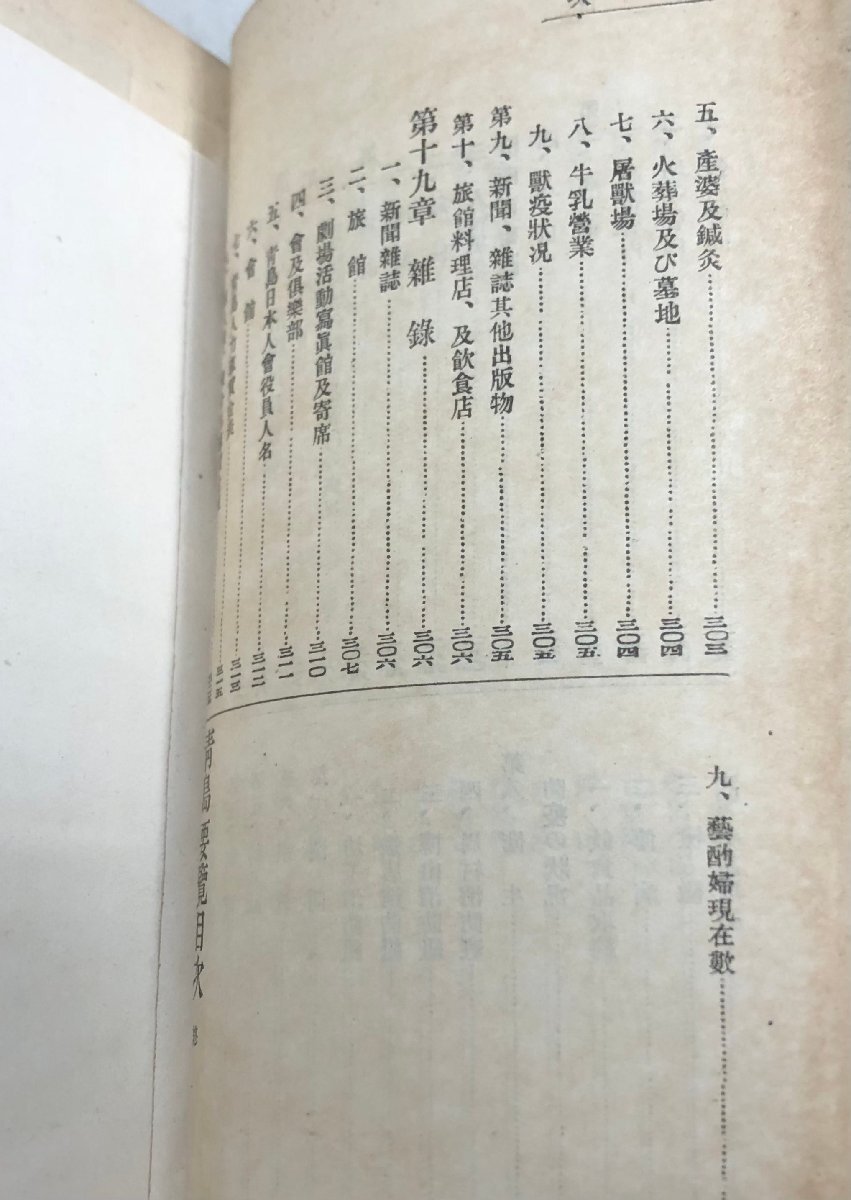 五、產婆及鍼灸……三〇三
六、火葬場及び墓地……三〇四
七、屠獸場……三〇四
八、牛乳營業……三〇五
九、獸疫狀况……三〇五
第九、新聞、雜誌其他出版物……三〇五
第十、旅館料理店、及飮食店……三〇六
第十九章 雜錄……三〇六
一、新聞雜誌……三〇六
二、旅館……三〇七
三、劇場活動寫眞館及寄席……三一〇
四、會及俱樂部……三一一
五、靑島日本人會役員人名……三一二
六、會館……三一三
三一五
九、藝酌婦現在數……
靑島要覽目次 終